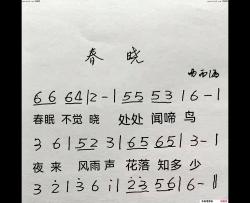 春晓
6 6 6 4 | 2 - | 5 5 5 3 | 6 - |
春眠 不觉 晓 处处 闻啼 鸟
3 6 | 5 3 2 | 3 6 5 6 5 | 3 - |
夜 来 风雨 声 花落 知多 少
3 2̇ 1̇ 3 6 1̇ | 2̇ 3̇ 5 6 | 6 - ‖